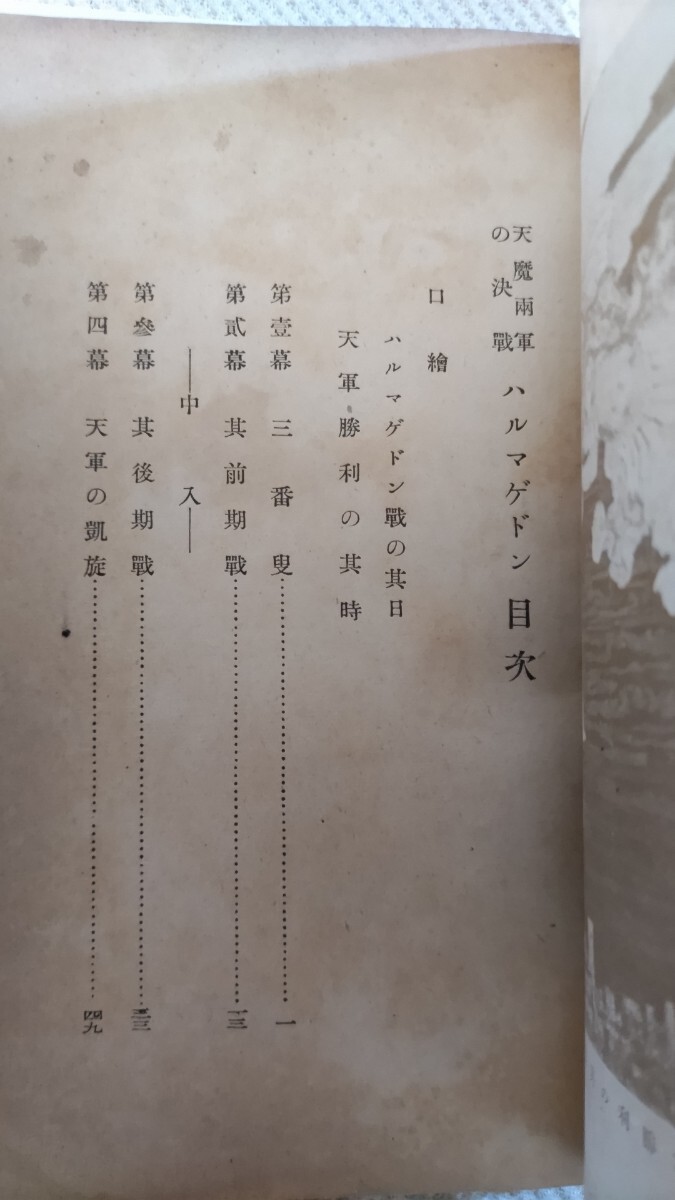 天魔兩軍の決戰 ハルマゲドン 目次
口繪
ハルマゲドン戰の其日
天軍勝利の其時
第壹幕 三番叟……………一
第貳幕 其前期戰……………一三
――中入――
第參幕 其後期戰……………三三
第四幕 天軍の凱旋……………四九